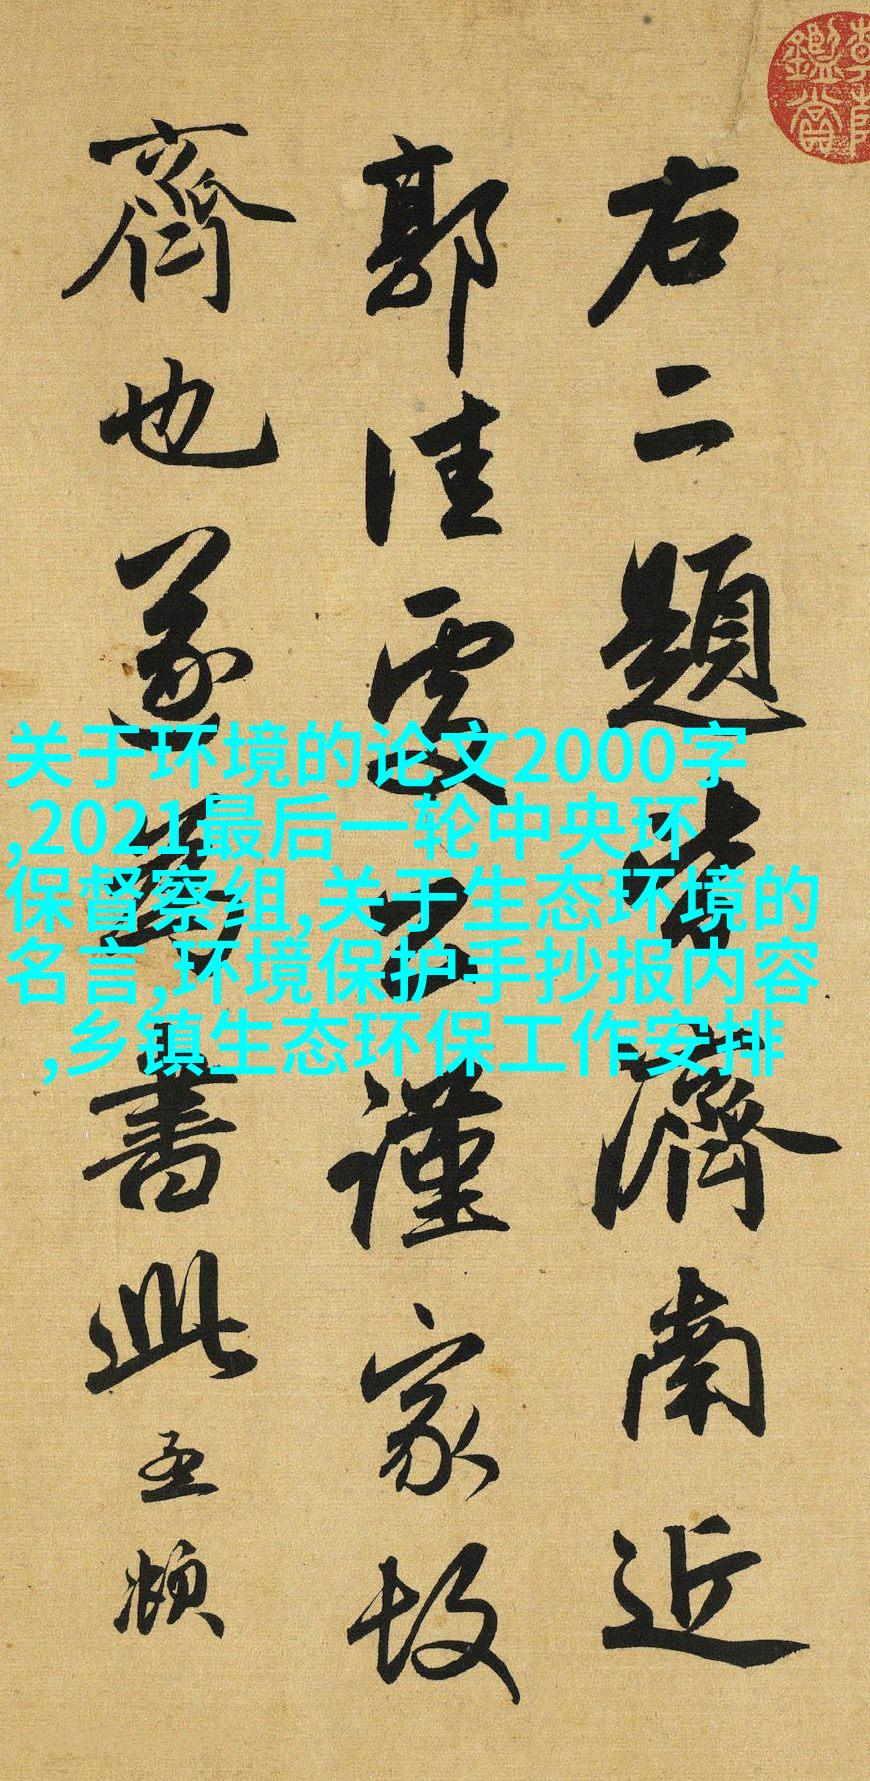 右二題皆濟南近
郭佳處公謹家故
齊也遂為書此孟頫
关于环境的论文2000字
,2021最后一轮中央环
保督察组,关于生态环境的
名言,环境保护手抄报内容
,乡镇生态环保工作安排